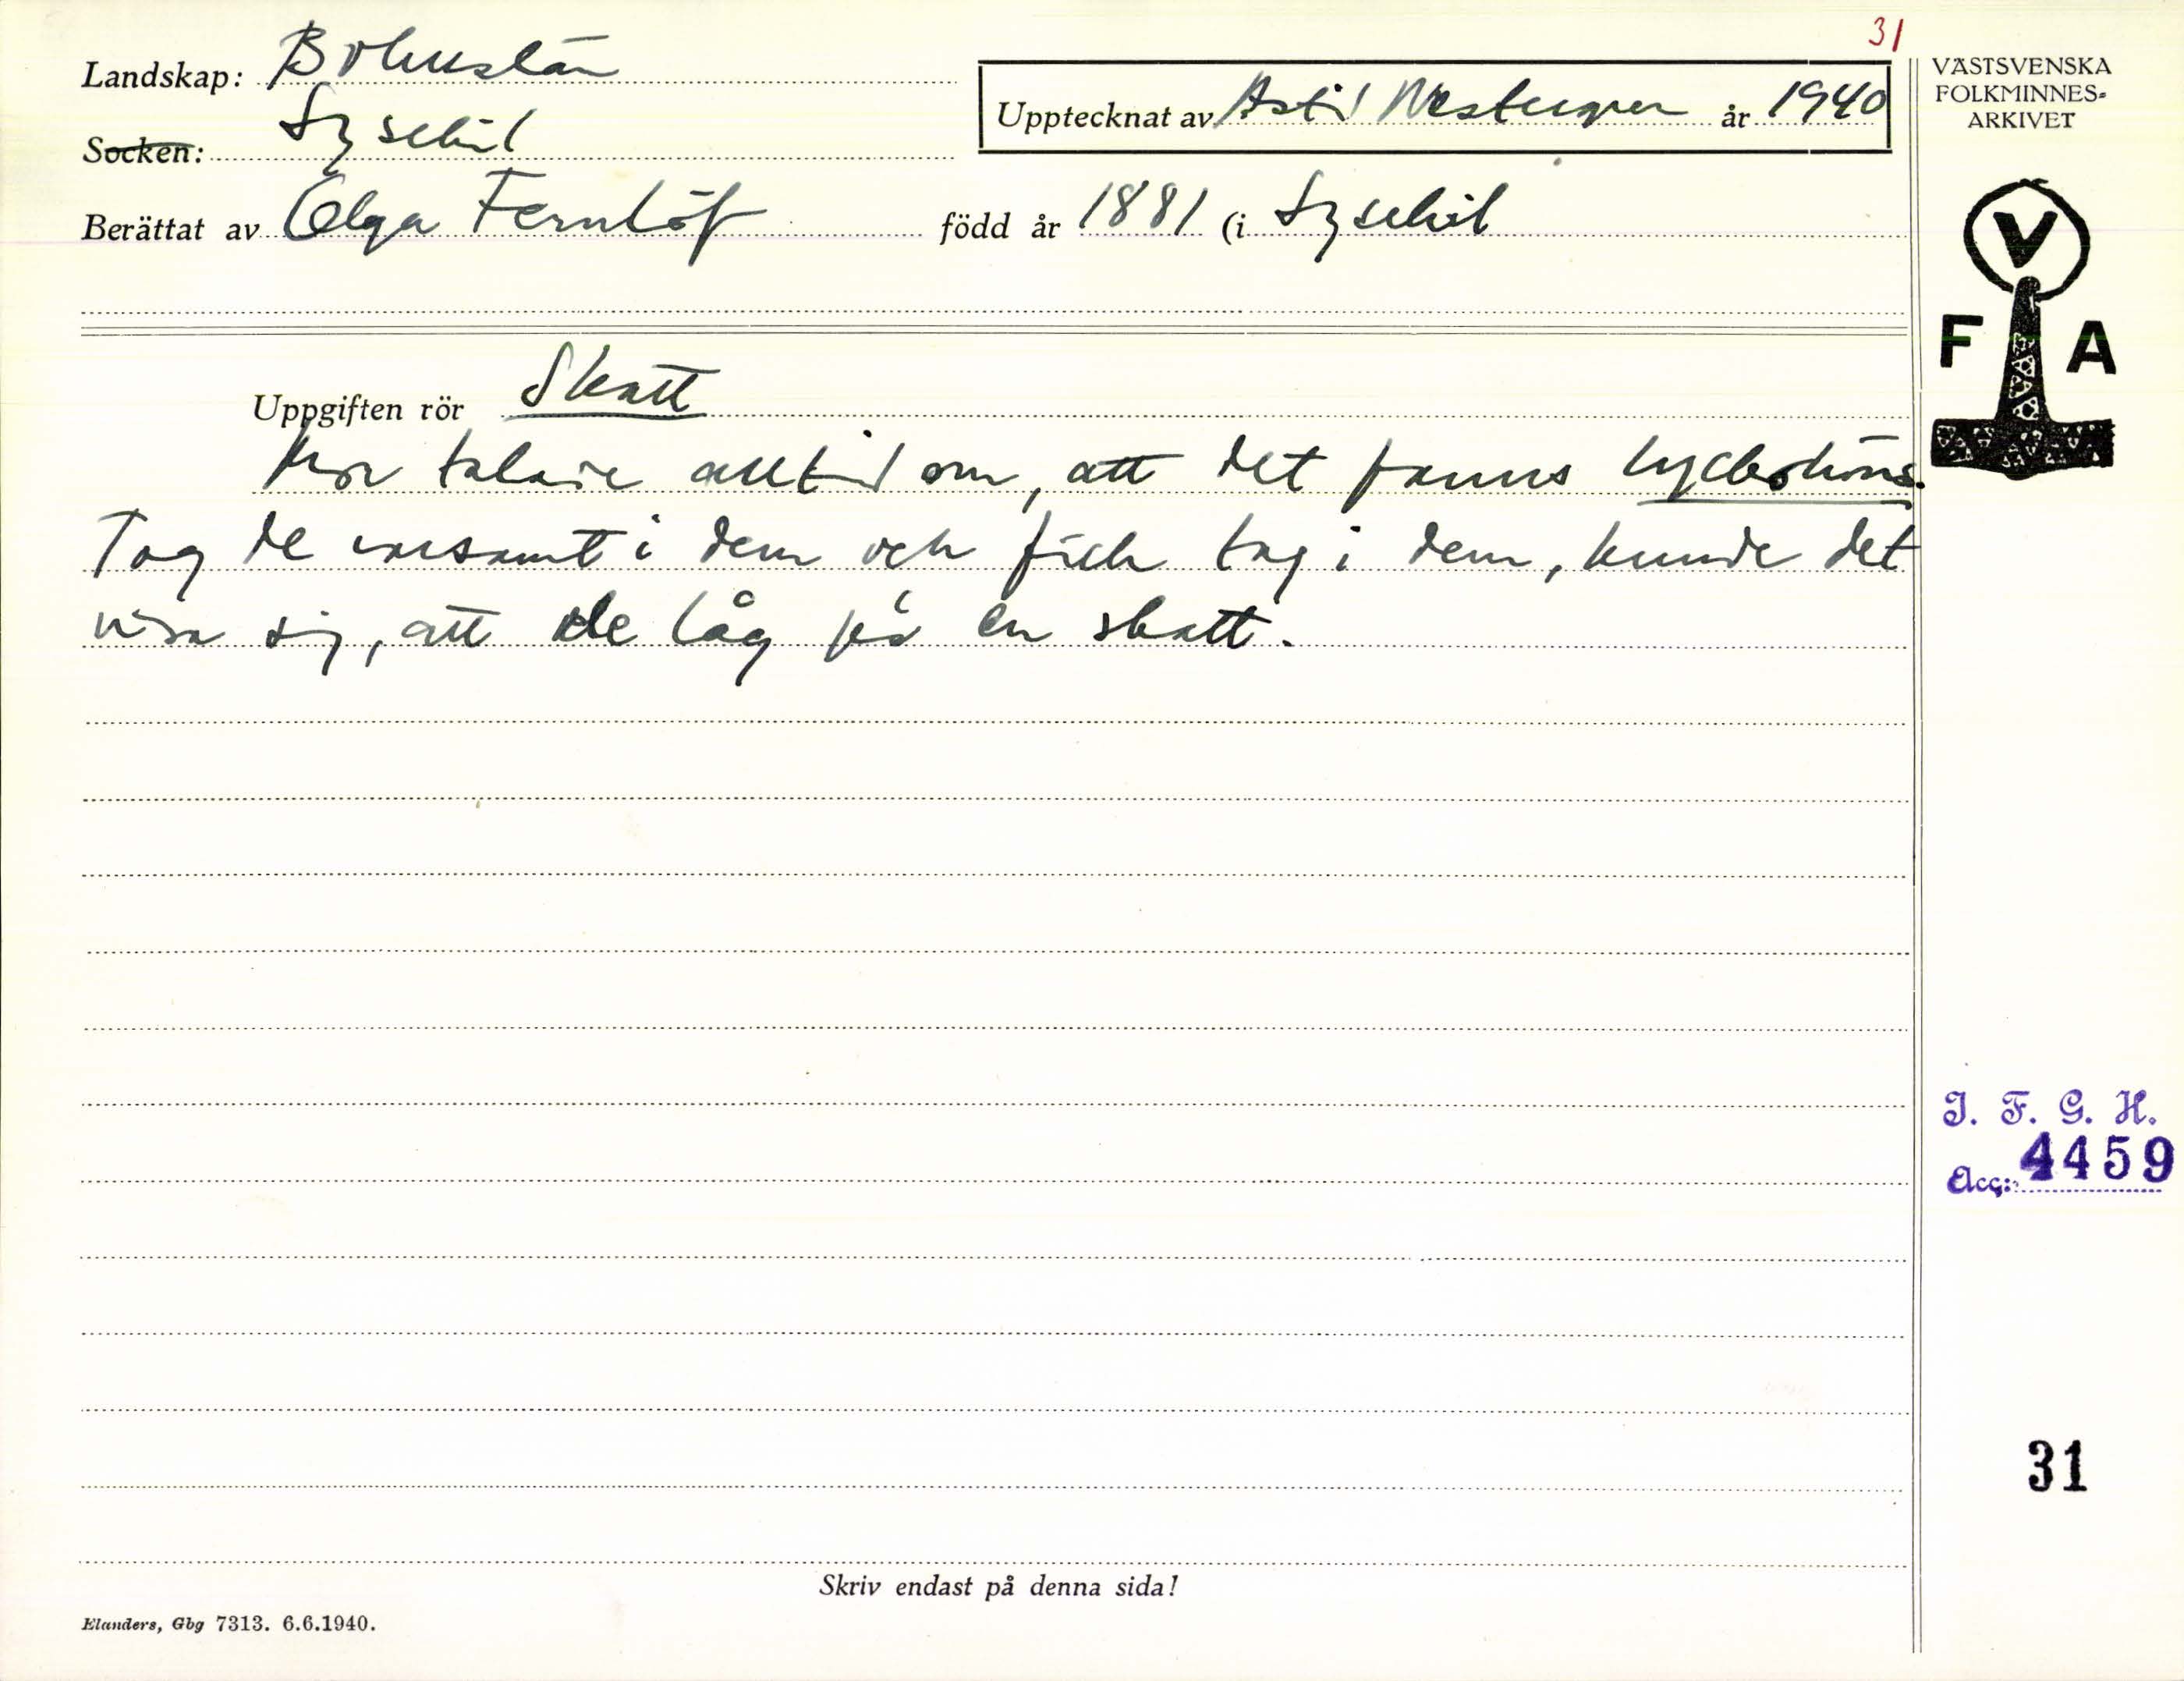 31
Landskap: Bohuslän
Upptecknat av Astrid Westergren år 1940
Socken: Lysekil
Berättat av Olga Fernlöf född år 1881 (i Lysekil
VÄSTSVENSKA
FOLKMINNES-
ARKIVET
V
F A
Uppgiften rör Skatt
Mor talade alltid om, att det fanns lyckohöns.
Tog de varsamt i dem och fick tag i dem, kunde det
visa sig, att de låg på en skatt.
I. F. G. H.
Acc: 4459
31
Skriv endast på denna sida!
Elanders, Gbg 7313. 6.6.1940.